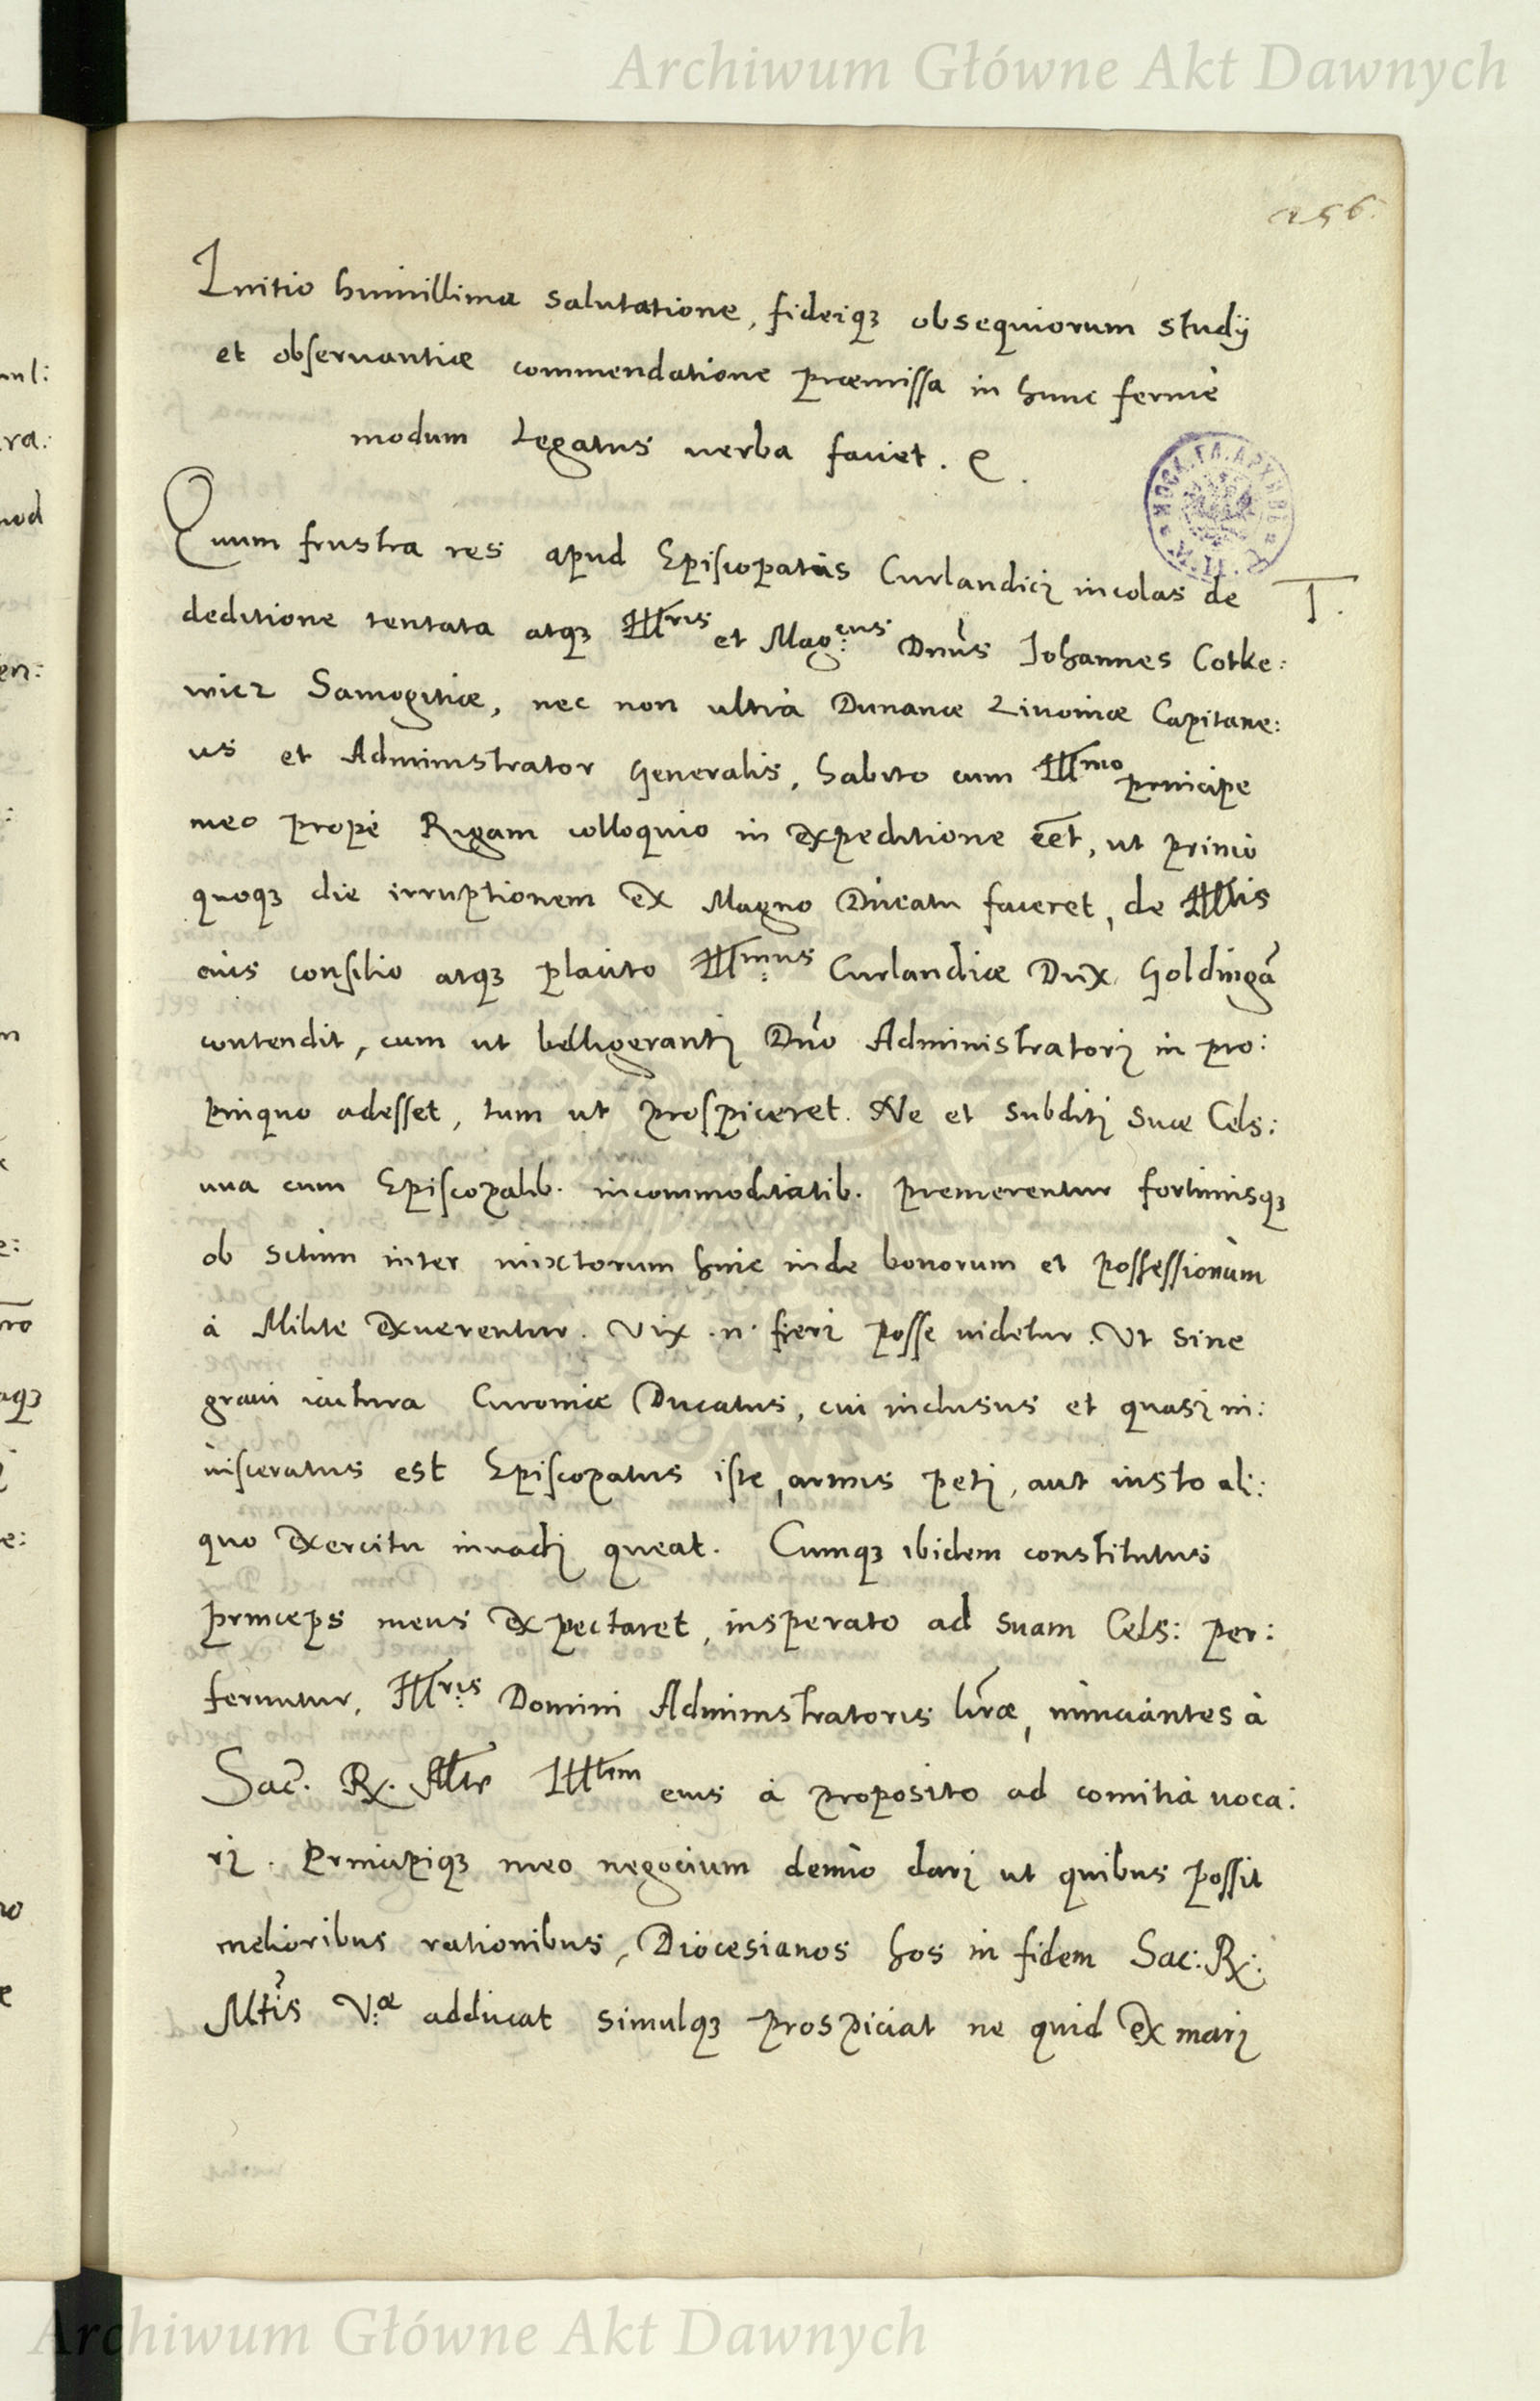 Archiwum Główne Akt Dawnych
256.
Initio humillima salutatione, fideiqȝ obsequiorum studij
et obseruantiæ commendatione præmissa in hunc fermè
modum Legatus uerba faciet.
Quum frustra res apud Episcopatus Curlandici incolas de
T.
deditione tentata atqȝ Illris et Mag:cus Dnus Iohannes Cotke:
wicz Samogitiæ, nec non ultrà Dunanæ Liuoniæ Capitane:
us et Administrator Generalis, habito cum Illmo principe
meo propè Rigam colloquio in expeditione eet, ut primo
quoqȝ die irruptionem ex Magno Ducatu faceret, de Illtis
eius consilio atqȝ placito Illmus Curlandiæ Dux Goldingã
contendit, cum ut belligeranti Dno Administratori in pro:
pinquo adesset, tum ut prospiceret. Ne et subditi suæ Cels:
una cum Episcopalib. incommoditatib. premerentur fortunisqȝ
ob situm inter mixtorum hinc inde bonorum et possessionum
à Milite exuerentur. Vix .n. fieri posse uidetur. Vt sine
graui iactura Curoniæ Ducatus, cui inclusus et quasi in:
uisceratus est Episcopatus iste, armis peti, aut iusto ali:
quo exercitu inuadi queat. Cumqȝ ibidem constitutus
princeps meus expectaret, insperato ad suam Cels: per:
feruntur, Illris Domini Administratoris lræ, nunciantes à
Sac. R. Mte Illtem eius à proposito ad comitia uoca:
ri. Principiqȝ meo negocium denuo dari ut quibus possit
melioribus rationibus, Diocesianos hos in fidem Sac: R:
Mtis V:æ adducat simulqȝ prospiciat ne quid ex mari
Archiwum Główne Akt Dawnych